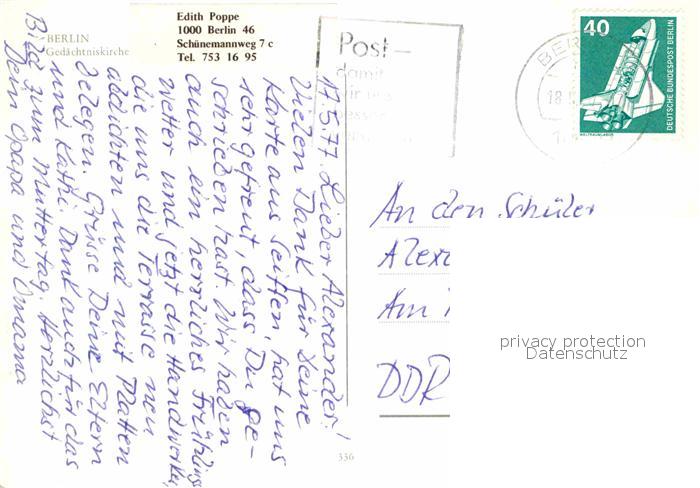 BERLIN
Gedächtniskirche
Edith Poppe
1000 Berlin 46
Schünemannweg 7 c
Tel. 753 16 95
Post-
damit
wir uns
besser
40
DEUTSCHE BUNDESPOST BERLIN
WELTRAUMLABOR
BER
18.
17.5.77. Lieber Alexander!
Vielen Dank für Deine
Karte aus Seiffen, hat uns
sehr gefreut, dass Du ge-
schrieben hast. Wir haben
auch ein herrliches Frühlings
wetter und jetzt die Handwerker,
die uns die Terrasse neu
abdichten und mit Platten
belegen. Grüsse Deine Eltern
und Kathi. Dank auch für das
Bild zum Muttertag. Herzlichst
Dein Opapa und Omama
An den Schüler
Alexa
Am
DDR
336
privacy protection
Datenschutz